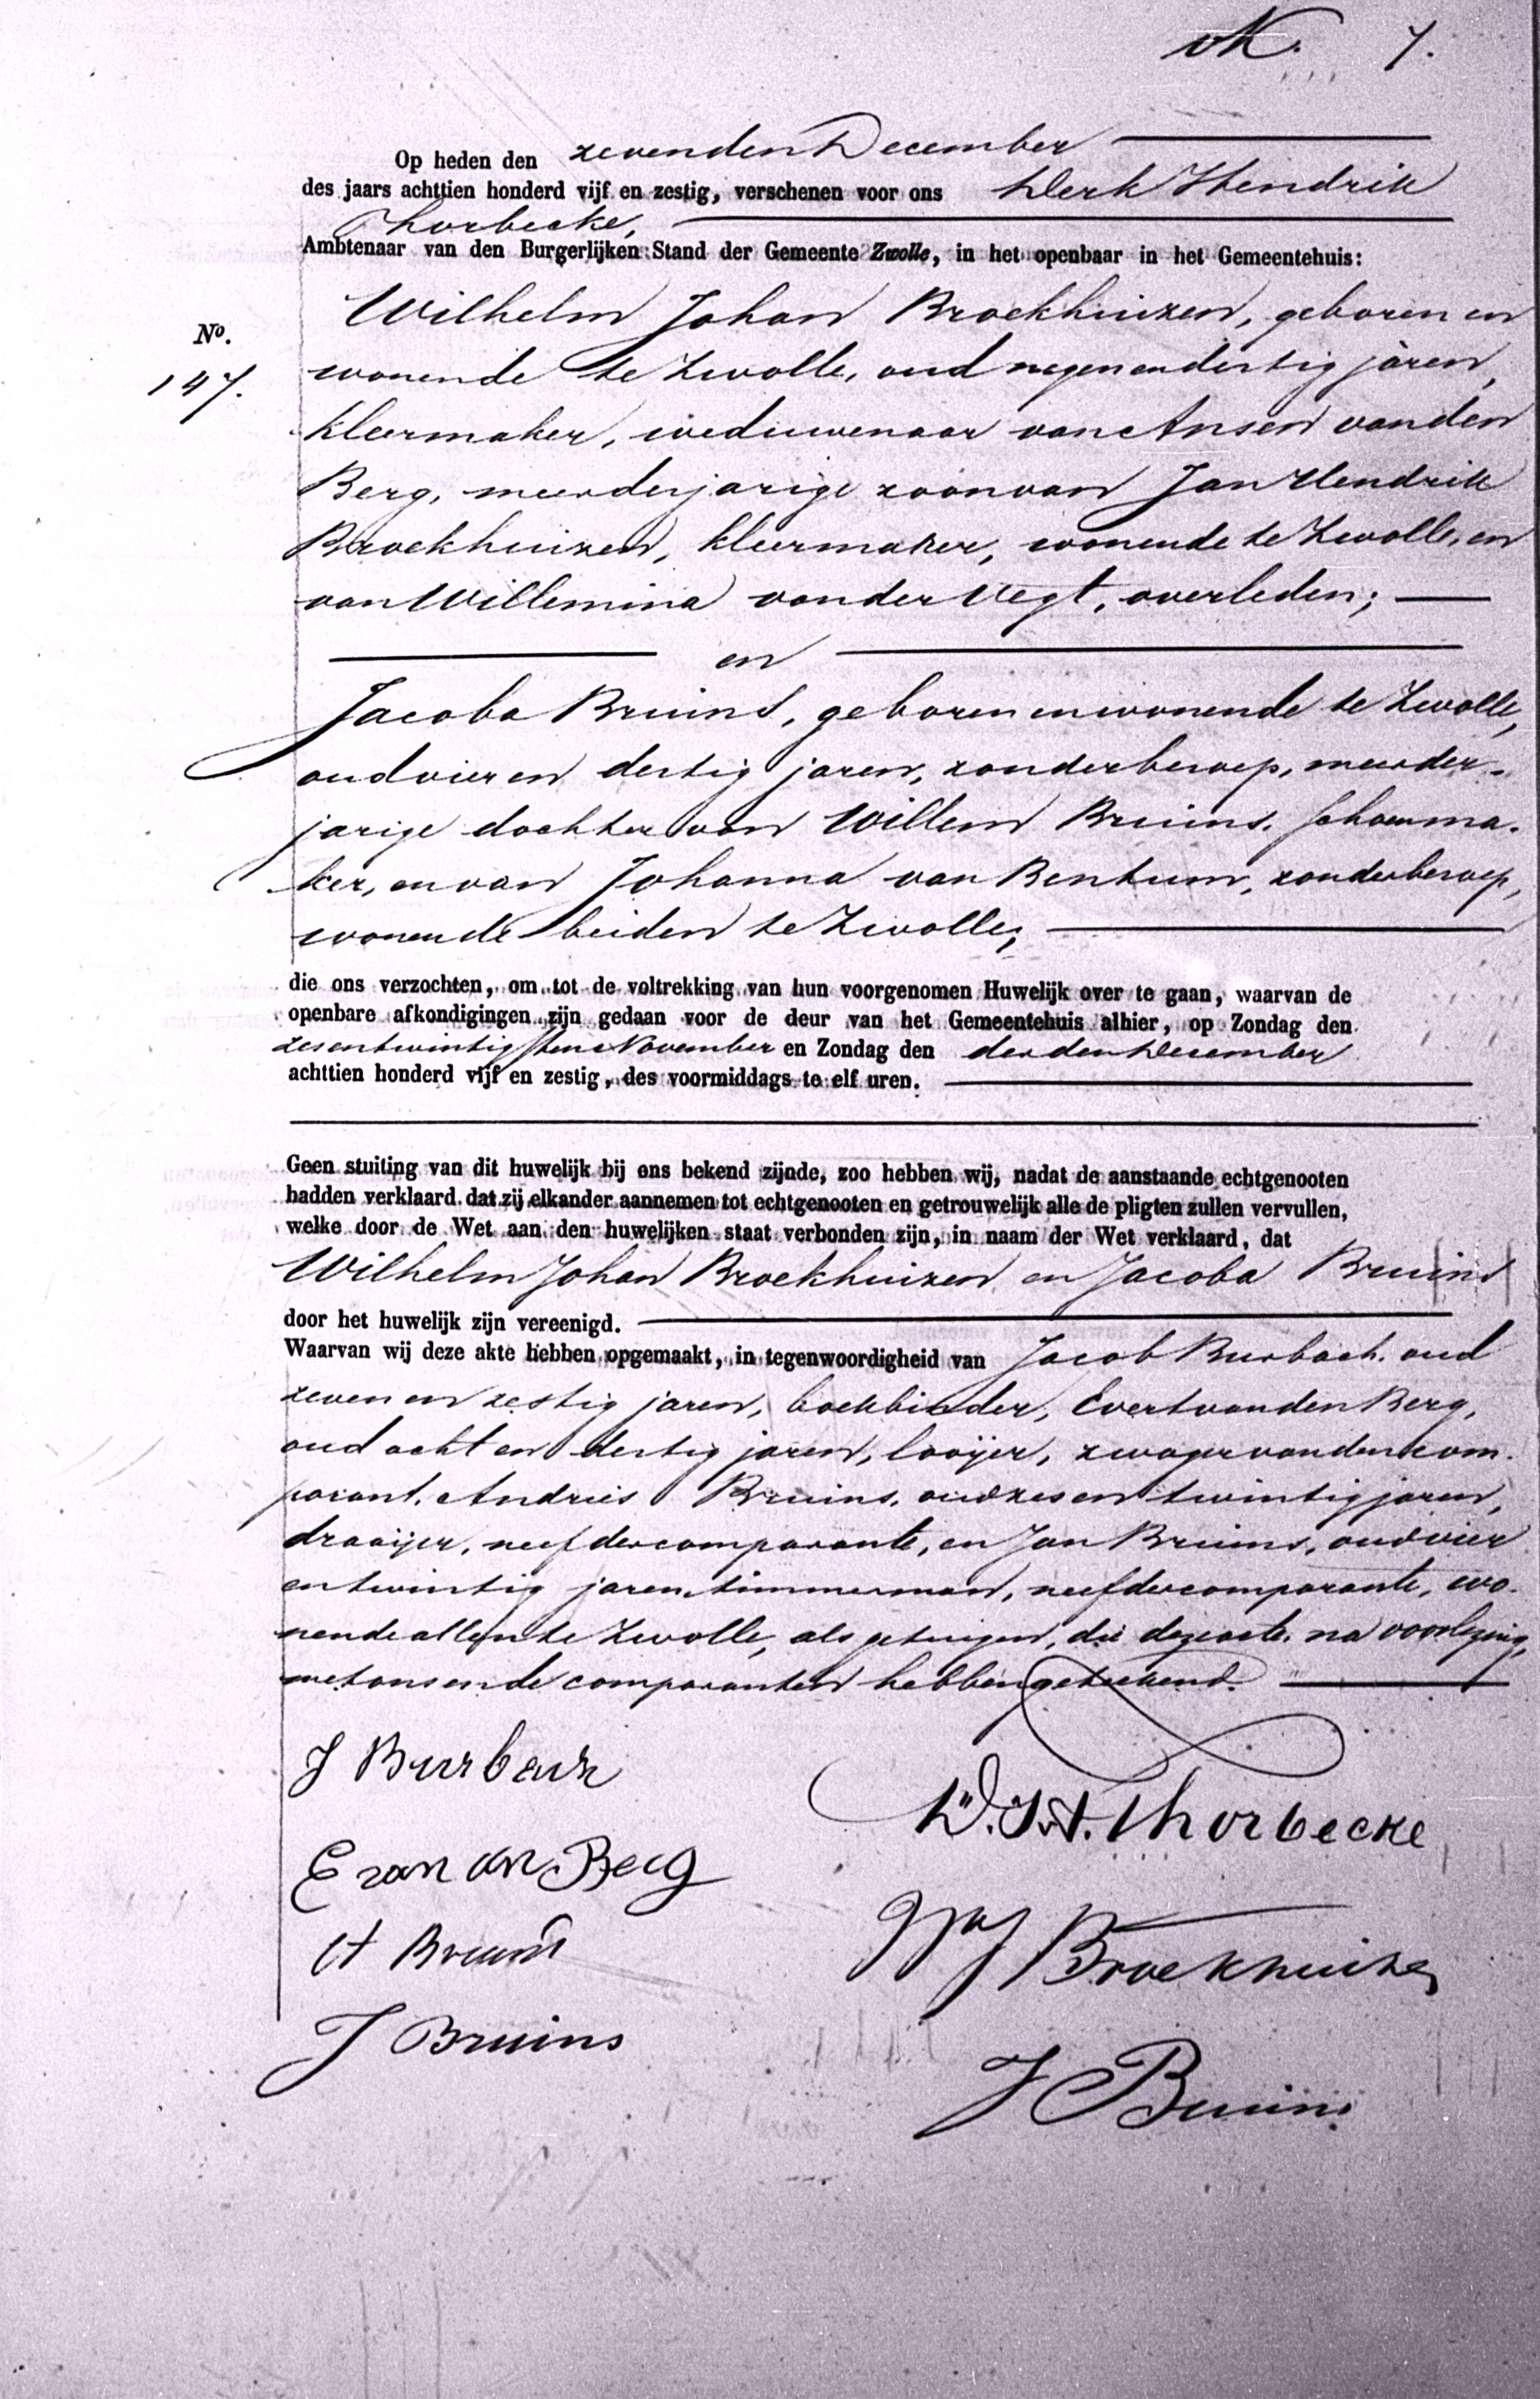 7.
Op heden den zevenden December
des jaars achttien honderd vijf en zestig, verschenen voor ons Derk Hendrik
Thorbecke,
Ambtenaar van den Burgerlijken Stand der Gemeente Zwolle, in het openbaar in het Gemeentehuis:
Wilhelm Johan Broekhuizen, geboren en
No.
wonende te Zwolle, oud negen en dertig jaren,
147.
kleermaker, weduwenaar van Ansen van den
Berg, meerderjarige zoon van Jan Hendrik
Broekhuizen, kleermaker, wonende te Zwolle, en
van Willemina van der Vegt, overleden;
en
Jacoba Bruins, geboren en wonende te Zwolle,
oud vier en dertig jaren, zonder beroep, meerder-
jarige dochter van Willem Bruins, schoenma-
ker, en van Johanna van Bentum, zonder beroep,
wonende beiden te Zwolle;
die ons verzochten, om tot de voltrekking van hun voorgenomen Huwelijk over te gaan, waarvan de
openbare afkondigingen zijn gedaan voor de deur van het Gemeentehuis alhier, op Zondag den
zes en twintigsten November en Zondag den derden December
achttien honderd vijf en zestig, des voormiddags te elf uren.
Geen stuiting van dit huwelijk bij ons bekend zijnde, zoo hebben wij, nadat de aanstaande echtgenooten
hadden verklaard dat zij elkander aannemen tot echtgenooten en getrouwelijk alle de pligten zullen vervullen,
welke door de Wet aan den huwelijken staat verbonden zijn, in naam der Wet verklaard, dat
Wilhelm Johan Broekhuizen en Jacoba Bruins
door het huwelijk zijn vereenigd.
Waarvan wij deze akte hebben opgemaakt, in tegenwoordigheid van Jacob Burbach, oud
zeven en zestig jaren, boekbinder, Evert van den Berg,
oud acht en dertig jaren, looijer, zwager van den com-
parant, Andries Bruins, oud zes en twintig jaren,
draaijer, neef der comparante, en Jan Bruins, oud vier
en twintig jaren, timmerman, neef der comparante, wo-
nende allen te Zwolle, als getuigen, die deze acte, na voorlezing,
met ons en de comparanten hebben geteekend.
J Burbach
D. H. Thorbecke
E van den Berg
W J Broekhuizen
A Bruins
J Bruins
J Bruins